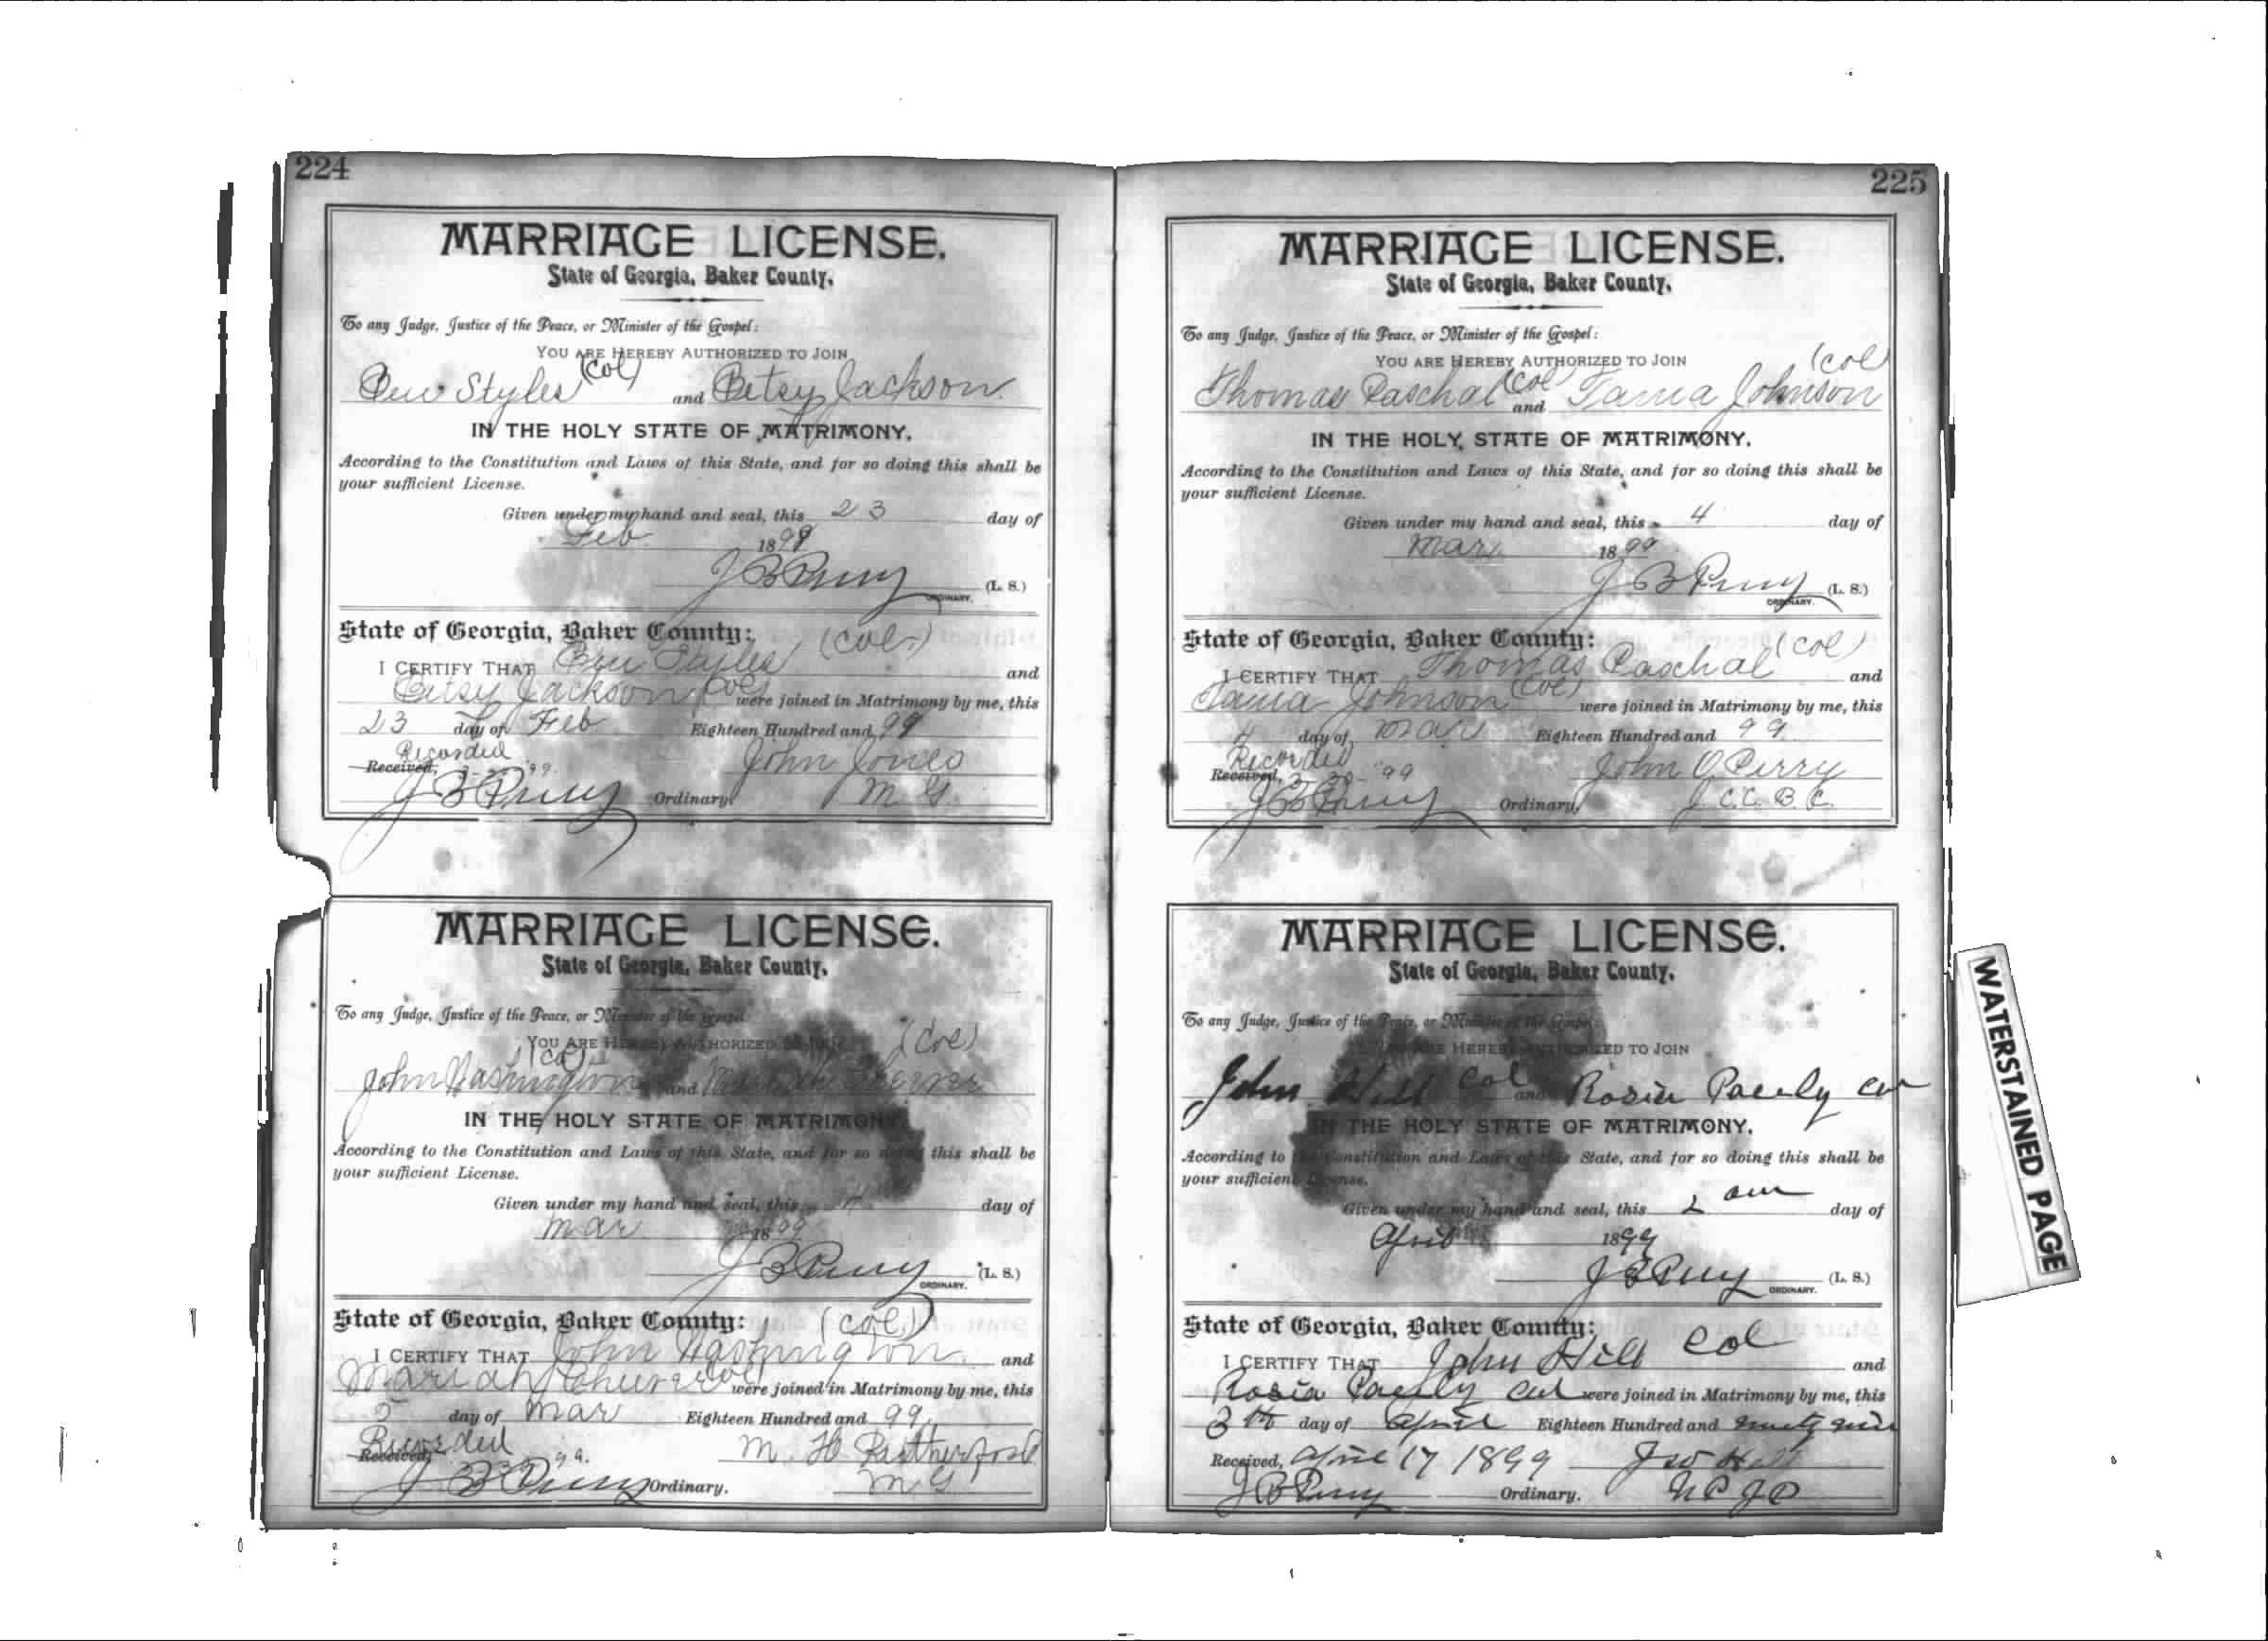 224
MARRIAGE LICENSE.
State of Georgia, Baker County.
To any Judge, Justice of the Peace, or Minister of the Gospel:
YOU ARE HEREBY AUTHORIZED TO JOIN
Ben Styles (Col) and Betsy Jackson
IN THE HOLY STATE OF MATRIMONY.
According to the Constitution and Laws of this State, and for so doing this shall be
your sufficient License.
Given under my hand and seal, this 23 day of
Feb 1899
J B Perry (L. S.)
ORDINARY.
State of Georgia, Baker County: (Col.)
I CERTIFY THAT Ben Styles and
Betsy Jackson (Col) were joined in Matrimony by me, this
23 day of Feb Eighteen Hundred and 99
Recorded
Received, '99. John Jones
J B Perry Ordinary. M G.
MARRIAGE LICENSE.
State of Georgia, Baker County.
To any Judge, Justice of the Peace, or Minister of the Gospel:
YOU ARE HEREBY AUTHORIZED TO JOIN (Col)
John Washington (Col) and Mariah
IN THE HOLY STATE OF MATRIMONY
According to the Constitution and Laws of this State, and for so doing this shall be
your sufficient License.
Given under my hand and seal, this 4 day of
Mar 1899
J B Perry (L. S.)
ORDINARY.
State of Georgia, Baker County: (Col)
I CERTIFY THAT John Washington and
Mariah (Col) were joined in Matrimony by me, this
5 day of Mar Eighteen Hundred and 99
Recorded
Received, 99. M. H.
J B Perry Ordinary. M G
225
MARRIAGE LICENSE.
State of Georgia, Baker County.
To any Judge, Justice of the Peace, or Minister of the Gospel:
YOU ARE HEREBY AUTHORIZED TO JOIN (Col)
Thomas Paschal (Col) and Johnson
IN THE HOLY STATE OF MATRIMONY.
According to the Constitution and Laws of this State, and for so doing this shall be
your sufficient License.
Given under my hand and seal, this 4 day of
Mar 1899
J B Perry (L. S.)
ORDINARY.
State of Georgia, Baker County: (Col)
I CERTIFY THAT Thomas Paschal and
Johnson (Col) were joined in Matrimony by me, this
4 day of Mar Eighteen Hundred and 99
Recorded
Received, '99 John O Perry
J B Perry Ordinary. J C. C. B. C.
MARRIAGE LICENSE.
State of Georgia, Baker County.
To any Judge, Justice of the Peace, or Minister of the Gospel:
YOU ARE HEREBY AUTHORIZED TO JOIN
John Hill Col and Rosia Col
IN THE HOLY STATE OF MATRIMONY.
According to the Constitution and Laws of this State, and for so doing this shall be
your sufficient License.
Given under my hand and seal, this 2 day of
April 1899
J B Perry (L. S.)
ORDINARY.
State of Georgia, Baker County:
I CERTIFY THAT John Hill Col and
Rosia Col were joined in Matrimony by me, this
3th day of April Eighteen Hundred and ninety nine
Received, April 17 1899 J W
J B Perry Ordinary. N P J P
WATERSTAINED PAGE